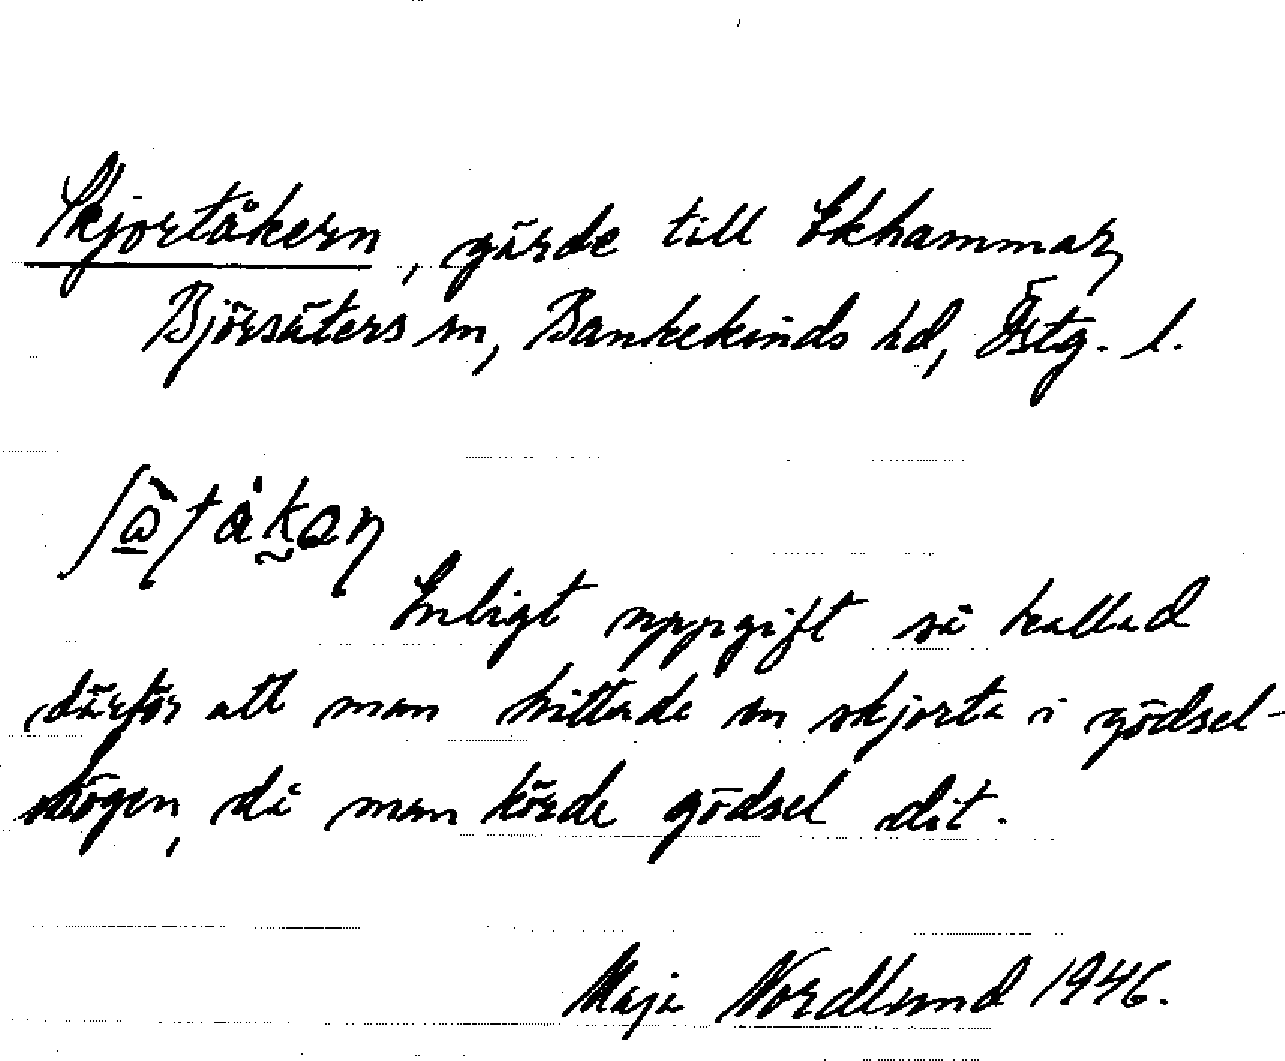 Skjortåkern, gärde till Ekhammar,
Björsäters sn, Bankekinds hd, Östg. l.
Enligt uppgift så kallad
därför att man hittade en skjorta i gödsel-
högen, då man körde gödsel dit.
Maja Nordlund 1946.